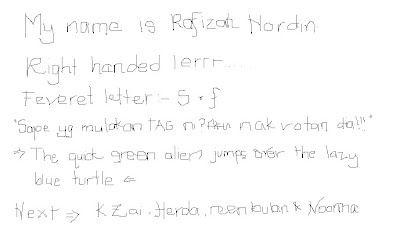 My name is Rafizah Nordin
Right handed lerrr.......
Feveret letter :- S & f
"Sape yg mulakan TAG ni? nak rotan dia!!!"
⇒ The quick green alien jumps over the lazy
blue turtle ⇐
Next ⇒ KZai, Herda, reenbulan & Noanma